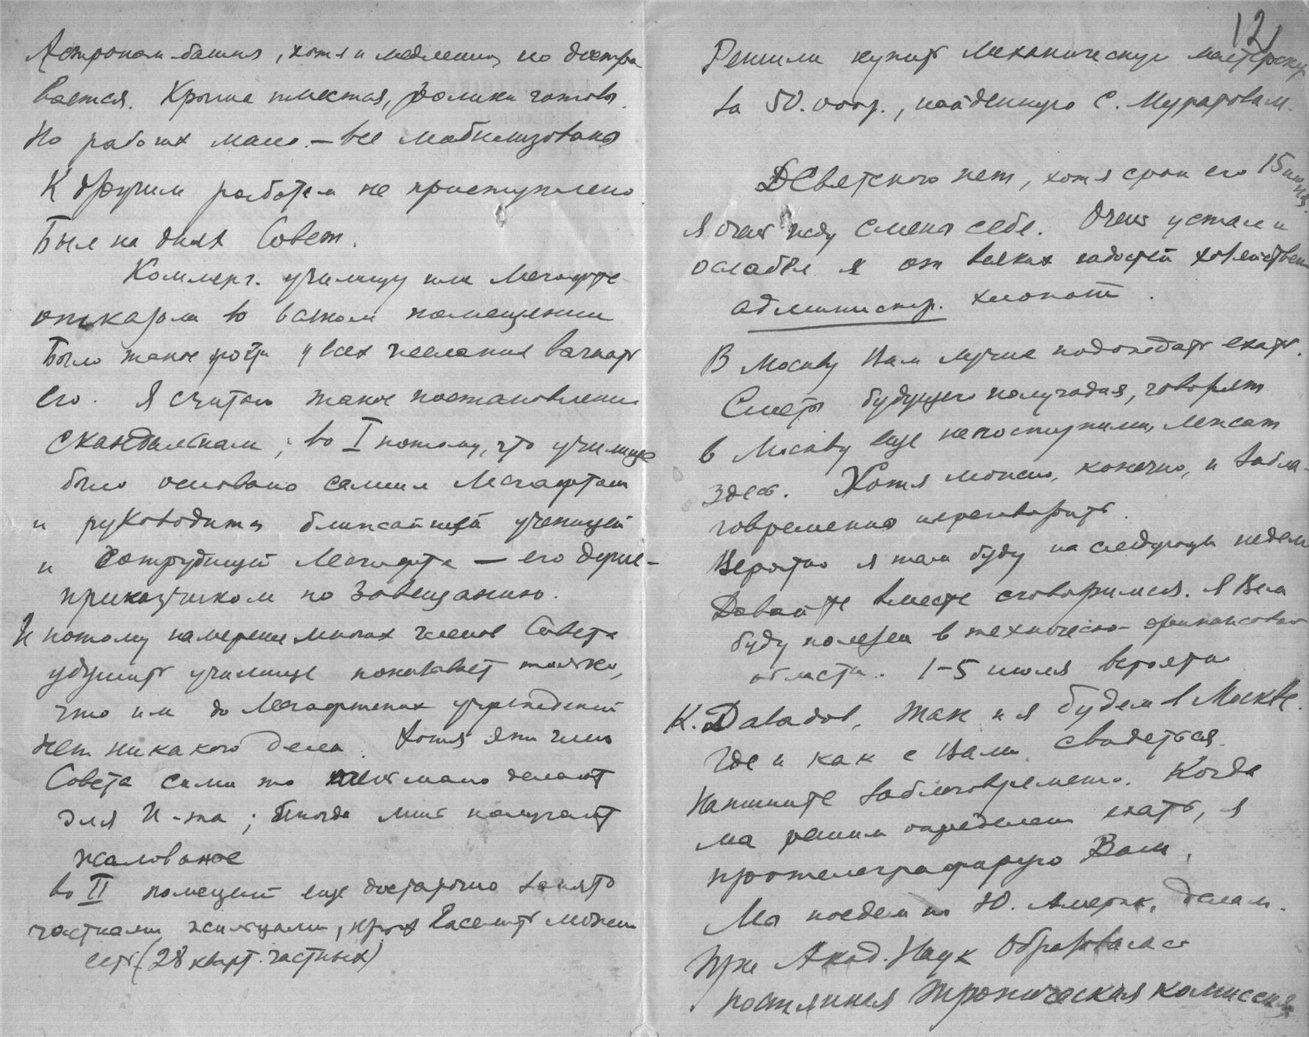 Астроном. башня, хотя и медленно, но достраи
вается. Крыша
готовы.
Но рабочих мало – все мобилизованы
К другим работам не приступлено
Был на днях Совет.
Коммерч. училищу им Лесгафта
отказали в
помещении
Было такое
у всех желание
его. Я считаю такое постановление
скандальным; во I потому, что училище
было основано самим Лесгафтом
и руководится ближайшей ученицей
и сотрудницей Лесгафта — его душе-
приказчиком по завещанию.
И потому намерение многих членов Совета
удушить училище показывает только,
что им до Лесгафтских учреждений
нет никакого дела. Хотя эти члены
Совета сами то мало делают
для И-та; иногда лишь получают
жалованье
во II помещений еще достаточно занято
частными жильцами,
может
есть (28 кварт. частных)
12
Решили купить механическую мастерскую
за 50.000р., найденную С. Муратовым.
ДСвятского нет, хотя срок его 15 июня.
Я очень жду смены себе. Очень устал и
ослабел я от всяких
хозяйствен
администр. хлопот.
В Москву Вам лучше подождать ехать.
Сметы будущего полугодия, говорят
в Москву еще не поступили, лежат
здесь. Хотя можно, конечно, и забла-
говременно переговорить.
Вероятно я там буду на следующей неделе
Давайте вместе сговоримся. Я Вам
буду полезен в техническо-финансовой
области. 1–5 июля вероятно
К. Давыдов, так и я будем в Москве.
Где и как с Вами свидеться.
Напишите заблаговременно. Когда
мы решим определенно ехать, я
протелеграфирую Вам.
Мы поедем по Ю. Америк. делам.
При Акад. Наук образовалась
постоянная Тропическая комиссия